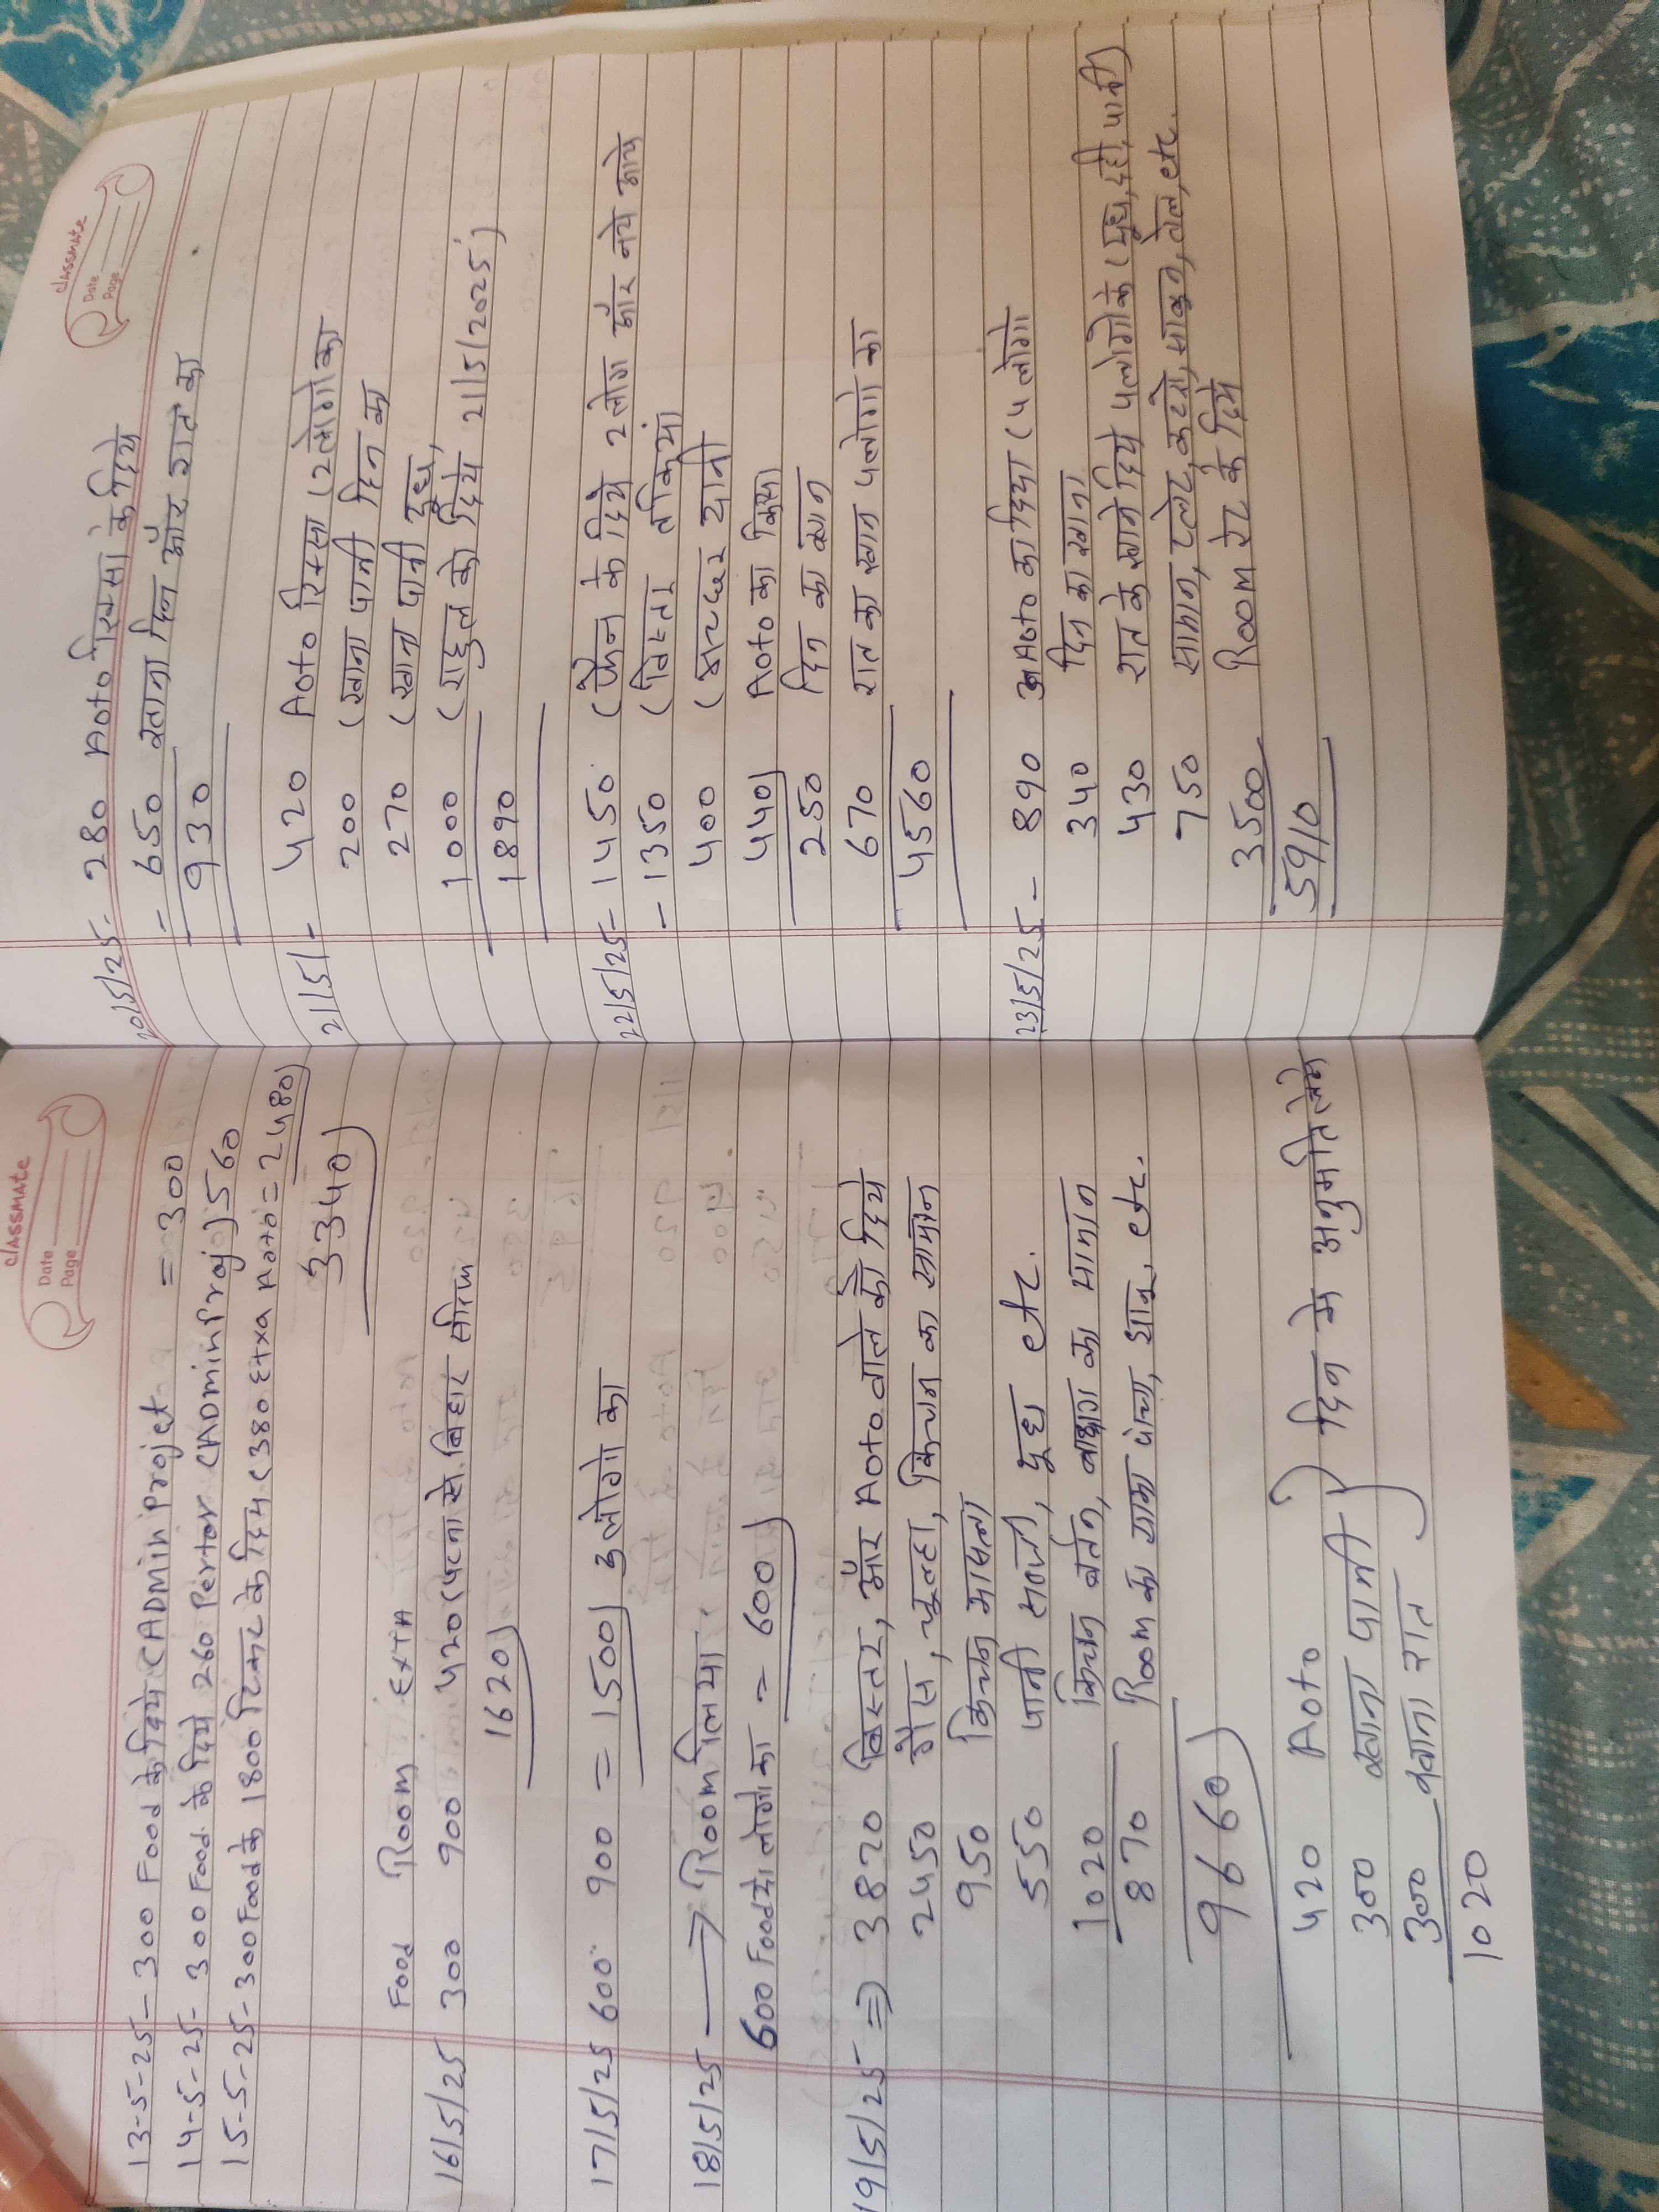 classmate
Date
Page
13-5-25 - 300 Food के दिये (ADMin Projet = 300
14-5-25 - 300 Food के दिये 260 Pertor (ADMinProj) 560
15-5-25 - 300 Food के 1800 टिकट के दिये (380 Etxa Aoto = 2480
3340
Food Room Exta
16/5/25 300 900 420 (पटना से बिहार
1620
17/5/25 600 900 = 1500 3 लोगो का
18/5/25 → Room लिया
600 Food दो लोगो का = 600
19/5/25 ⇒ 3820 बिस्तर, और Aoto वाले को दिये
2450 गैस, चूल्हा, किचन का सामान
950 किचन
550 पानी सब्जी, दूध etc.
1020 किचन बर्तन, का
870 Room का etc.
9660
420 Aoto
300 खाना पानी दिन मे अनुमति
300 खाना रात
1020
classmate
Date
Page
20/5/25 - 280 Aoto रिक्सा के दिये
- 650 खाना दिन और रात का
930
21/5/ - 420 Aoto रिक्सा (2 लोगो का
200 (खना पानी दिन का
270 (खाना पानी दूध,
1000 (राहुल को दिये 21/5/2025)
1890
22/5/25 - 1450 (फैन के दिये 2 लोग और नये आये
- 1350 (बिस्तर तकिया
400
440 Aoto का
250 दिन का खान
670 रात का खान 4 लोगो का
4560
23/5/25 - 890 Aoto का दिया (4 लोगो
340 दिन का खाना
430 रात के खाने दिये 4 लोगो के (दूध, दही, पानी)
750 सामान, प्लेट, साबुन, तेल, etc.
3500 Room रेट के दिये
5910